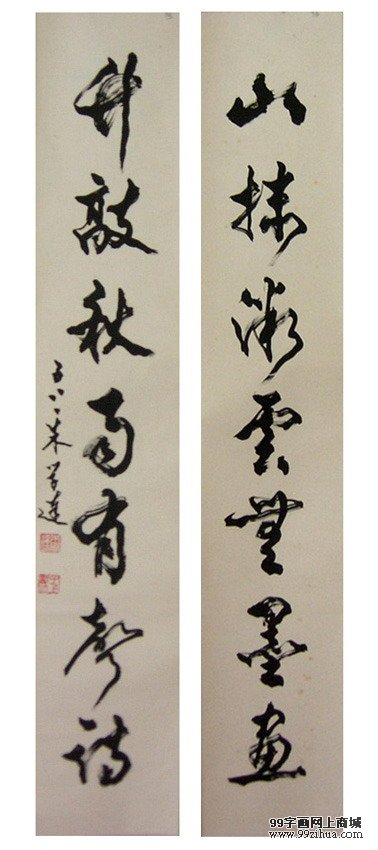 山抹微雲無墨畫
竹敲秋雨有聲詩
朱学達
99字画网上商城
www.99zihua.com